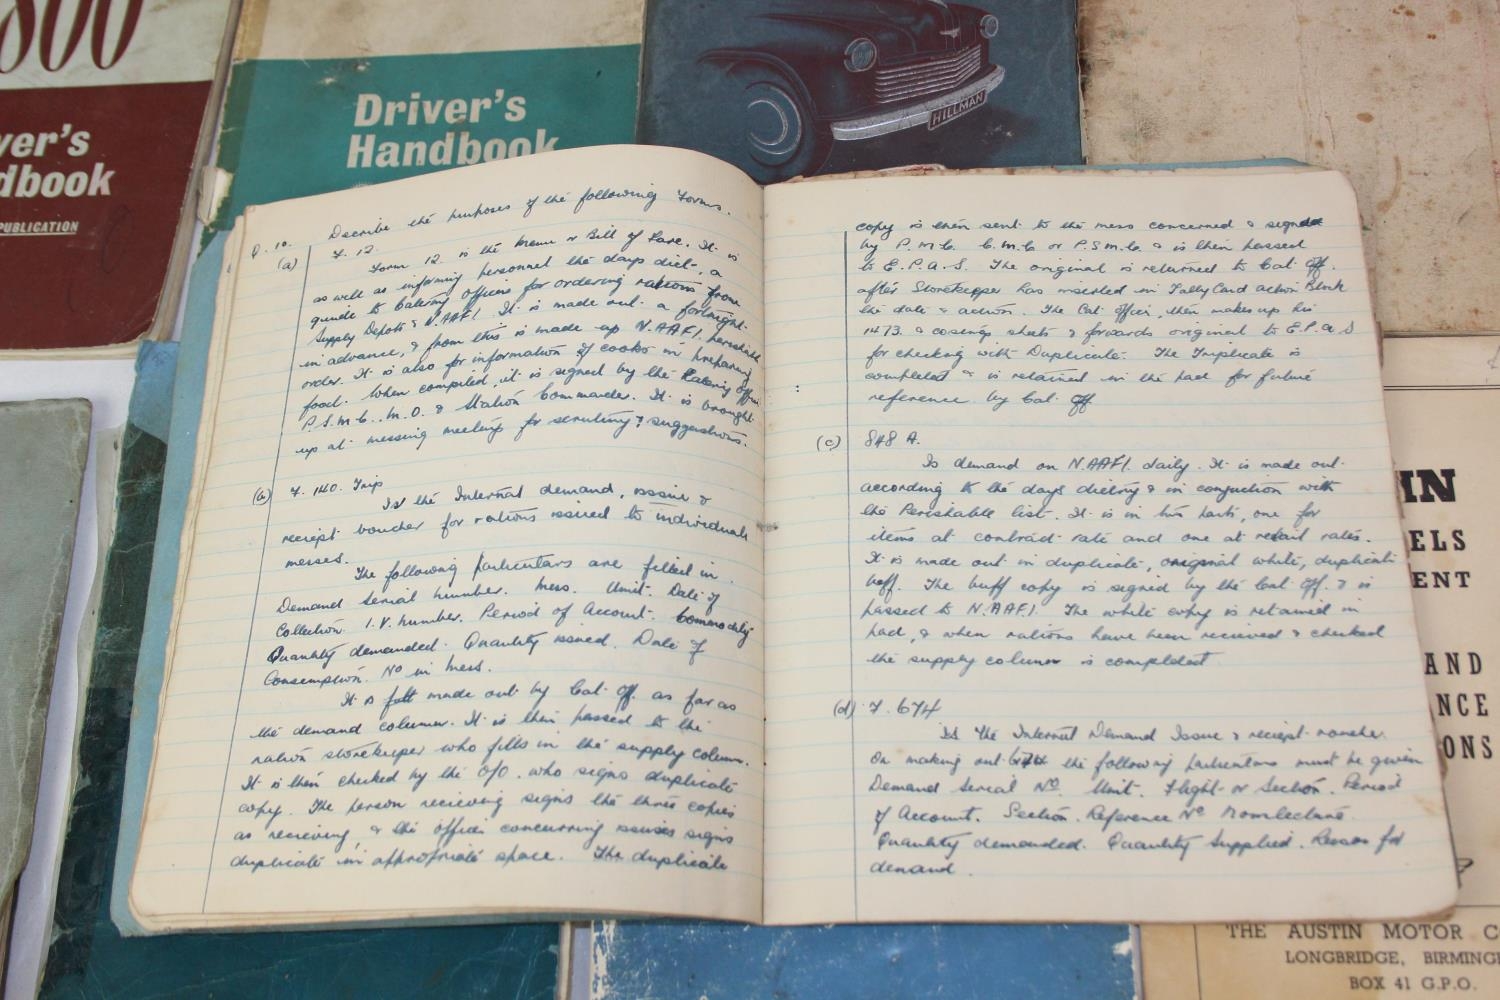 800
ver's
dbook
PUBLICATION
Driver's
Handbook
HILLMAN
Q. 10. Describe the purposes of the following Forms.
(a) F. 12.
Form 12 is the Menu or Bill of Fare. It is
as well as informing personnel the days diet, a
guide to Catering Officer for ordering rations from
Supply Depots & N.AAFI. It is made out a fortnight
in advance, & from this is made up N.AAFI. perishable
order. It is also for information of cooks in preparing
food. When compiled, it is signed by the Catering Officer
P.S.M.C., M.O. & Station Commander. It is brought
up at messing meetings for scrutiny & suggestions.
(b) F. 140. Trip
Is the Internal demand, issue &
reciept voucher for rations issued to individual
messes.
The following particulars are filled in.
Demand Serial Number. Mess. Unit. Date of
Collection. I.V. Number. Period of Account. Commodity
Quantity demanded. Quantity issued. Date of
Consumption. No in Mess.
It is made out by Cat. Off. as far as
the demand column. It is then passed to the
ration storekeeper who fills in the supply column.
It is then checked by the O/O. who signs duplicate
copy. The person recieving signs the three copies
as recieving, & the officer concerning issues signs
duplicate in appropriate space. The duplicate
copy is then sent to the mess concerned & signed
by P.M.C. C.M.C or P.S.M.C. & is then passed
to E.P.A.S. The original is returned to Cat. Off.
after Storekeeper has inserted in Tally Card action Block
the date & action. The Cat. Officer, then makes up his
1473. & costings sheets & forwards original to E.P.A.S
for checking with Duplicate. The Triplicate is
completed & is retained in the pad for future
reference by Cat. Off
(c) 848 A.
Is demand on N.AAFI. daily. It is made out
according to the days dietry & in conjuction with
the Perishable list. It is in two parts, one for
items at contract rate and one at retail rates.
It is made out in duplicate, original white, duplicate
buff. The buff copy is signed by the Cat. Off. & is
passed to N.AAFI. The white copy is retained in
pad, & when rations have been recieved & checked
the supply column is completed.
(d) F. 674
Is the Internal Demand Issue & reciept voucher.
On making out 674 the following particulars must be given
Demand Serial No. Unit. Flight or Section. Period
of Account. Section. Reference No Nomlecture.
Quantity demanded. Quantity Supplied. Reason for
demand.
IN
ELS
ENT
AND
NCE
ONS
THE AUSTIN MOTOR C
LONGBRIDGE, BIRMING
BOX 41 G.P.O.